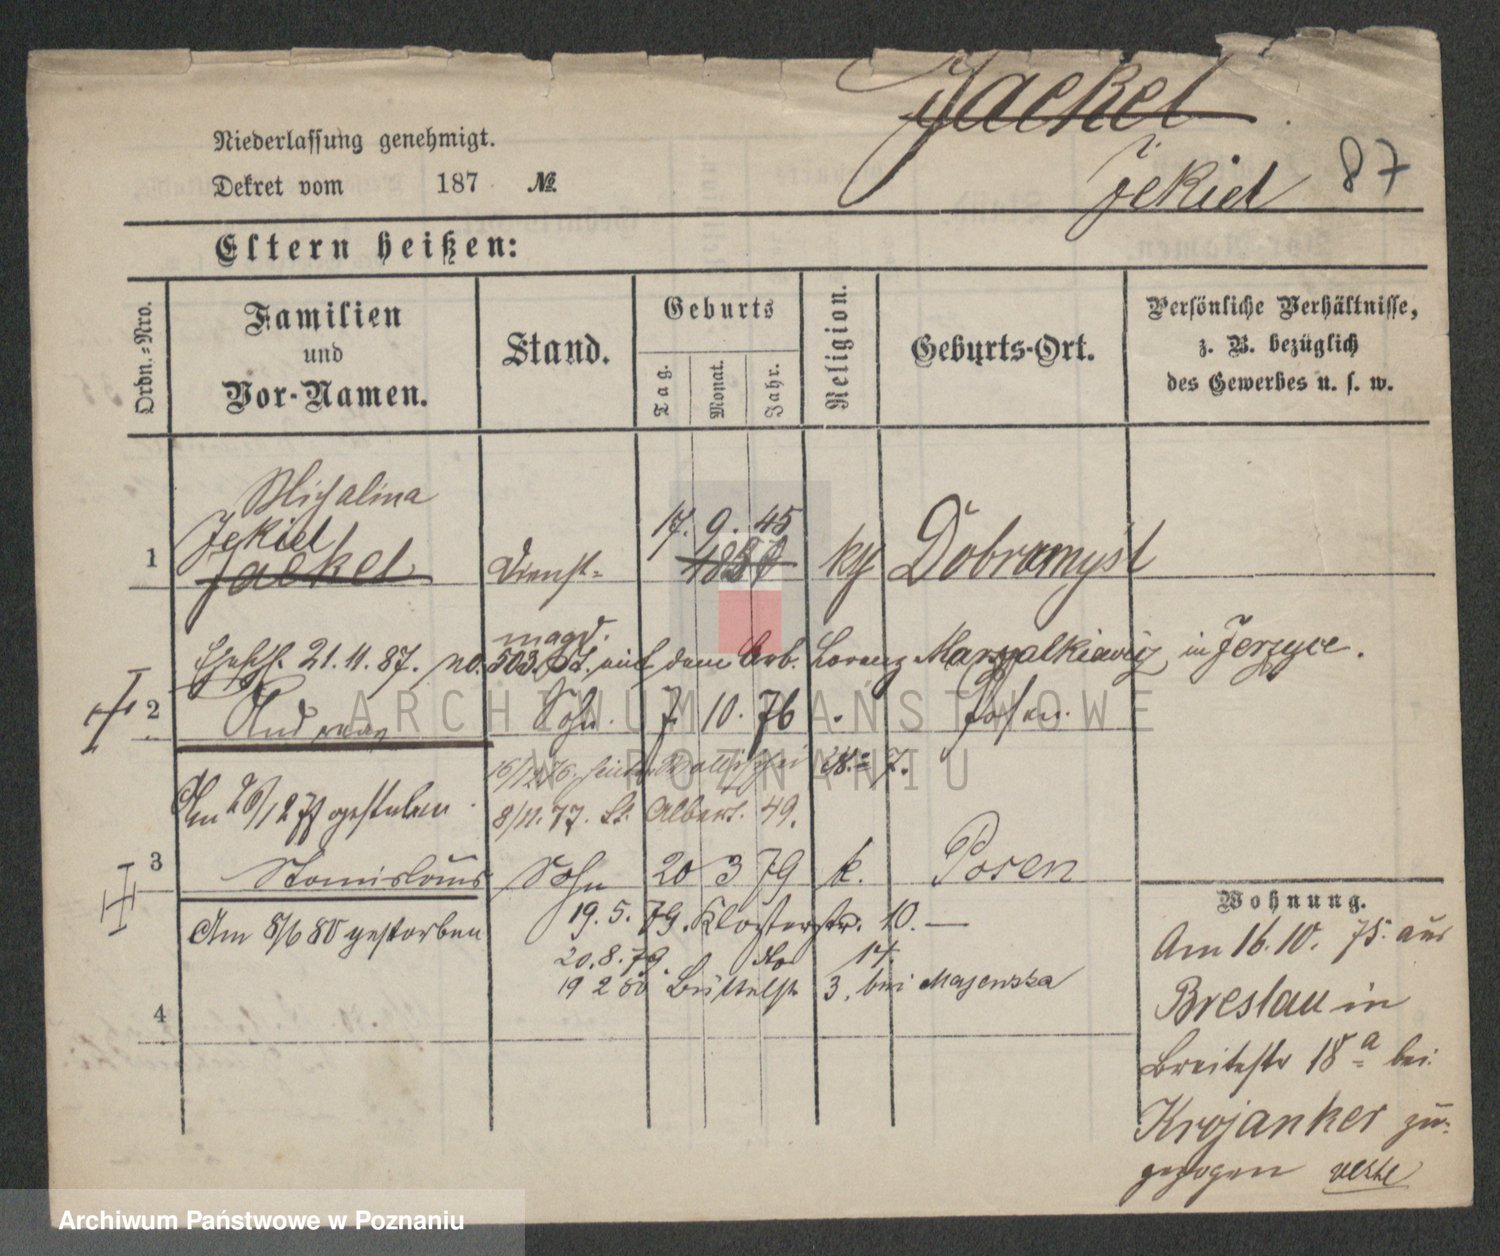 Jaekel
Jekiel 87
Niederlassung genehmigt.
Dekret vom 187 №
Eltern heißen:
Ordn.-Nro.
Familien
und
Vor-Namen.
Stand.
Geburts
Tag.
Monat.
Jahr.
Religion.
Geburts-Ort.
Persönliche Verhältnisse,
z. B. bezüglich
des Gewerbes u. s. w.
Michalina
Jekiel 17. 9. 45
1 Jaekel Dienst= 18 kth Dobramysl
magd.
21.11.87. no. 503. St. mit dem Arb. Lorenz in Jerzyce.
2 Andreas Sohn. 7. 10. 76 Posen.
16/12 76. 28. 7.
Am 26/12 77 gestorben 8/11. 77. St. Albert. 49.
3 Stanislaus Sohn 20 3 79 k. Posen
Am 8/6 80 gestorben 19. 5. 79. Klosterstr. 10. —
20. 8. 79. dto 17.
19 2 80 Büttelstr 3. bei Majewska
4
Wohnung.
Am 16. 10. 75. aus
Breslau in
Breitestr 18 a bei
Krojanker zu-
gezogen
ARCHIWUM PAŃSTWOWE
W POZNANIU
Archiwum Państwowe w Poznaniu